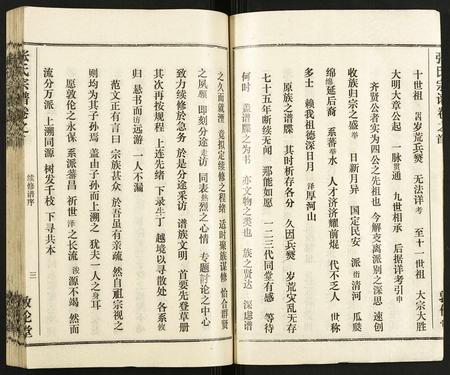 张氏宗谱卷之首
十世祖 因岁荒兵燹 无法详考 至十一世祖 大宗大胜
大明大章公起 一脉贯通 九世相承 后据详考引申
齐贤公者实为四公之先祖也 今解支离派别之深思 速创
收族归宗之盛举 日新月异 国定民安 派衍清河 瓜瓞
绵绵延后裔 系蕃华水 人才济济耀前焜 代不乏人 世称
多士 赖我祖德深日月 泽厚河山
原族之谱牒 其时析存各分 久因兵燹 岁荒灾乱无存
七十五年断续无闻 那能如愿 一二三代同堂有感 等待
何时 盖谱牒之为书 亦文物之类也 族之贤达 深虑谱
之久而就湮 竟拟定续修之程绪 适时聚族谋修 恰合群贤
之夙愿 即刻分途走访 同表热烈之心情 专题讨论之中心
致力续修於急务 於是分途采访 谱族文明 首要先登草册
其次再按规程 上连先绪 下录生丁 越境以寻散处 各系攸
归 悬书而访远游 一人不漏
范文正有言曰 宗族甚众 於吾虽有亲疏 然自祖宗视之
则均为其子孙焉 盖由子孙而上溯之 犹夫一人之身耳
愿敦伦之永保 系派蕃昌 祈世泽之长流 源不竭 然而
流分万派 上溯同源 树发千枝 下寻共本
张氏宗谱卷之
续修谱序
三
敦伦堂